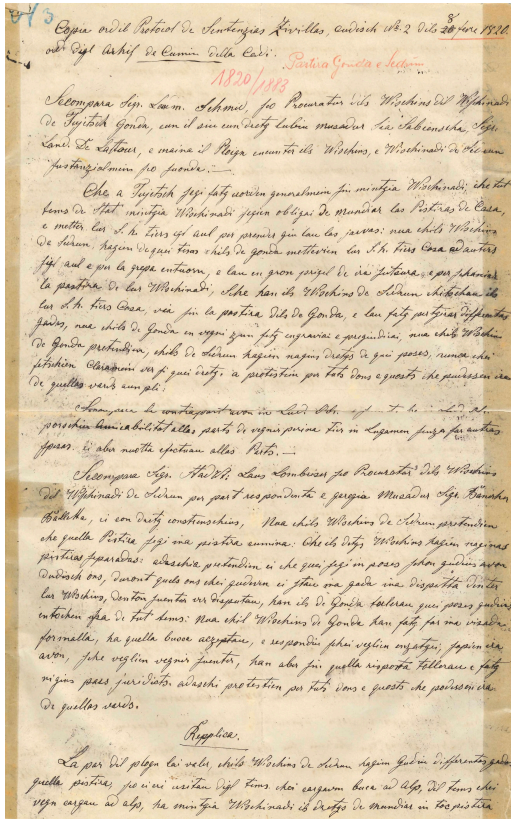 Copia ord il Protocol de Sentenzias Zivillas, cudisch No. 2 dils 28 fevr 1820.
ord digl Arhif de Cumin della Cadi.
Partira Gonda e Sedrun
1820/1883
Secompara Sigr. Laum. Schmid, po Procuratur dils Wischins dil Wischinadi
de Tujetsch Gonda, cun il siu cun dretg lubiu musadur Sia Sabienscha Sigr.
Land. De Lattour, e maina il Plaga encunter ils Wischins, e Wischinadi de Sedrun
sustanzialmein po suonda. —
Che a Tujetsch segi fatg uorden generalmein sin mintgia Wischinadi, che tut
tems de Stat mintgia Wischinadi segien obligai de mundiar las Pistiras de Casa,
e metter lur S. h. tiers sigl aul per prender giu lau las jarvas: nua chils Wischins
de Sedrun, hagien de quei tems chils de gonda mettevien lur S. h. tiers Casa ad auters
sigl aul e per la grepa entuorn, e lau en gron prigel de ira
la pastira de lur Wischinadi, Sche han ils Wischins de Sedrun ils
lur S. h. tiers Casa, via sin la pastira dils de Gonda, e lau fatg pertgirar differentas
gadas, nua chils de Gonda en vegni zuin fatg engraviai e pregiudiciai, nua chils Wischins
de Gonda pretendien, chils de Sedrun hagien nagins dretgs de quei poses, rumon chei
claramein ver si quei dretg. a protestein per tuts dons e cuosts che pudessen ira
de quellas varts aunpli:
la contrapart avon in Lud.
allas parts de vegnir perina tier in Ligamen senza far autras
spesas. ei aber nuotta efectuau allas Parts. —
Secompara Sigr. StadVt: Laus Lombriser po Procuratur dils Wischins
dil Wischinadi de Sedrun per part respondenta e garegia Musadur Sigr. Banaher
ei con dretg construschius, Nua chils Wischins de Sedrun pretendien
che quella Pistira segi ina pistira cumina: Che ils detgs Wischins hagien naginas
pistiras separadas: adaschia pretendein ei che quei segi in poses schon quidris avon
dudisch ons, duront quals ons chei gudevan ei stau ina gada ina dispetta denter
lur Wischins, denton suenter ver disputau, han ils di Gonda tolerau quei poses
entochen ussa de tut tems: Nua chil Wischins de Gonda han fatg far ina visada
formalla, ha quella bucca acceptau, e respondiu schei veglien enzatgei, sapien ira
avon, sche veglien vegnir suenter, han aber sin quella risposta tollerau e fatg
nigius pass juridics. adaschi protestein per tuts dons e cuosts che podessen ira
de quellas varts.
Repplica.
La part dil plogn lai valer, chils Wischins de Sedrun hagien Gudiu differentas gadas
quella pistira, po ei eri usitau digl tems. chei cargavan bucca ad Alp, Dil tems chei
vegn cargau ad alp, ha mintgia Wischinadi il dretgs de mundiar in toc pistira